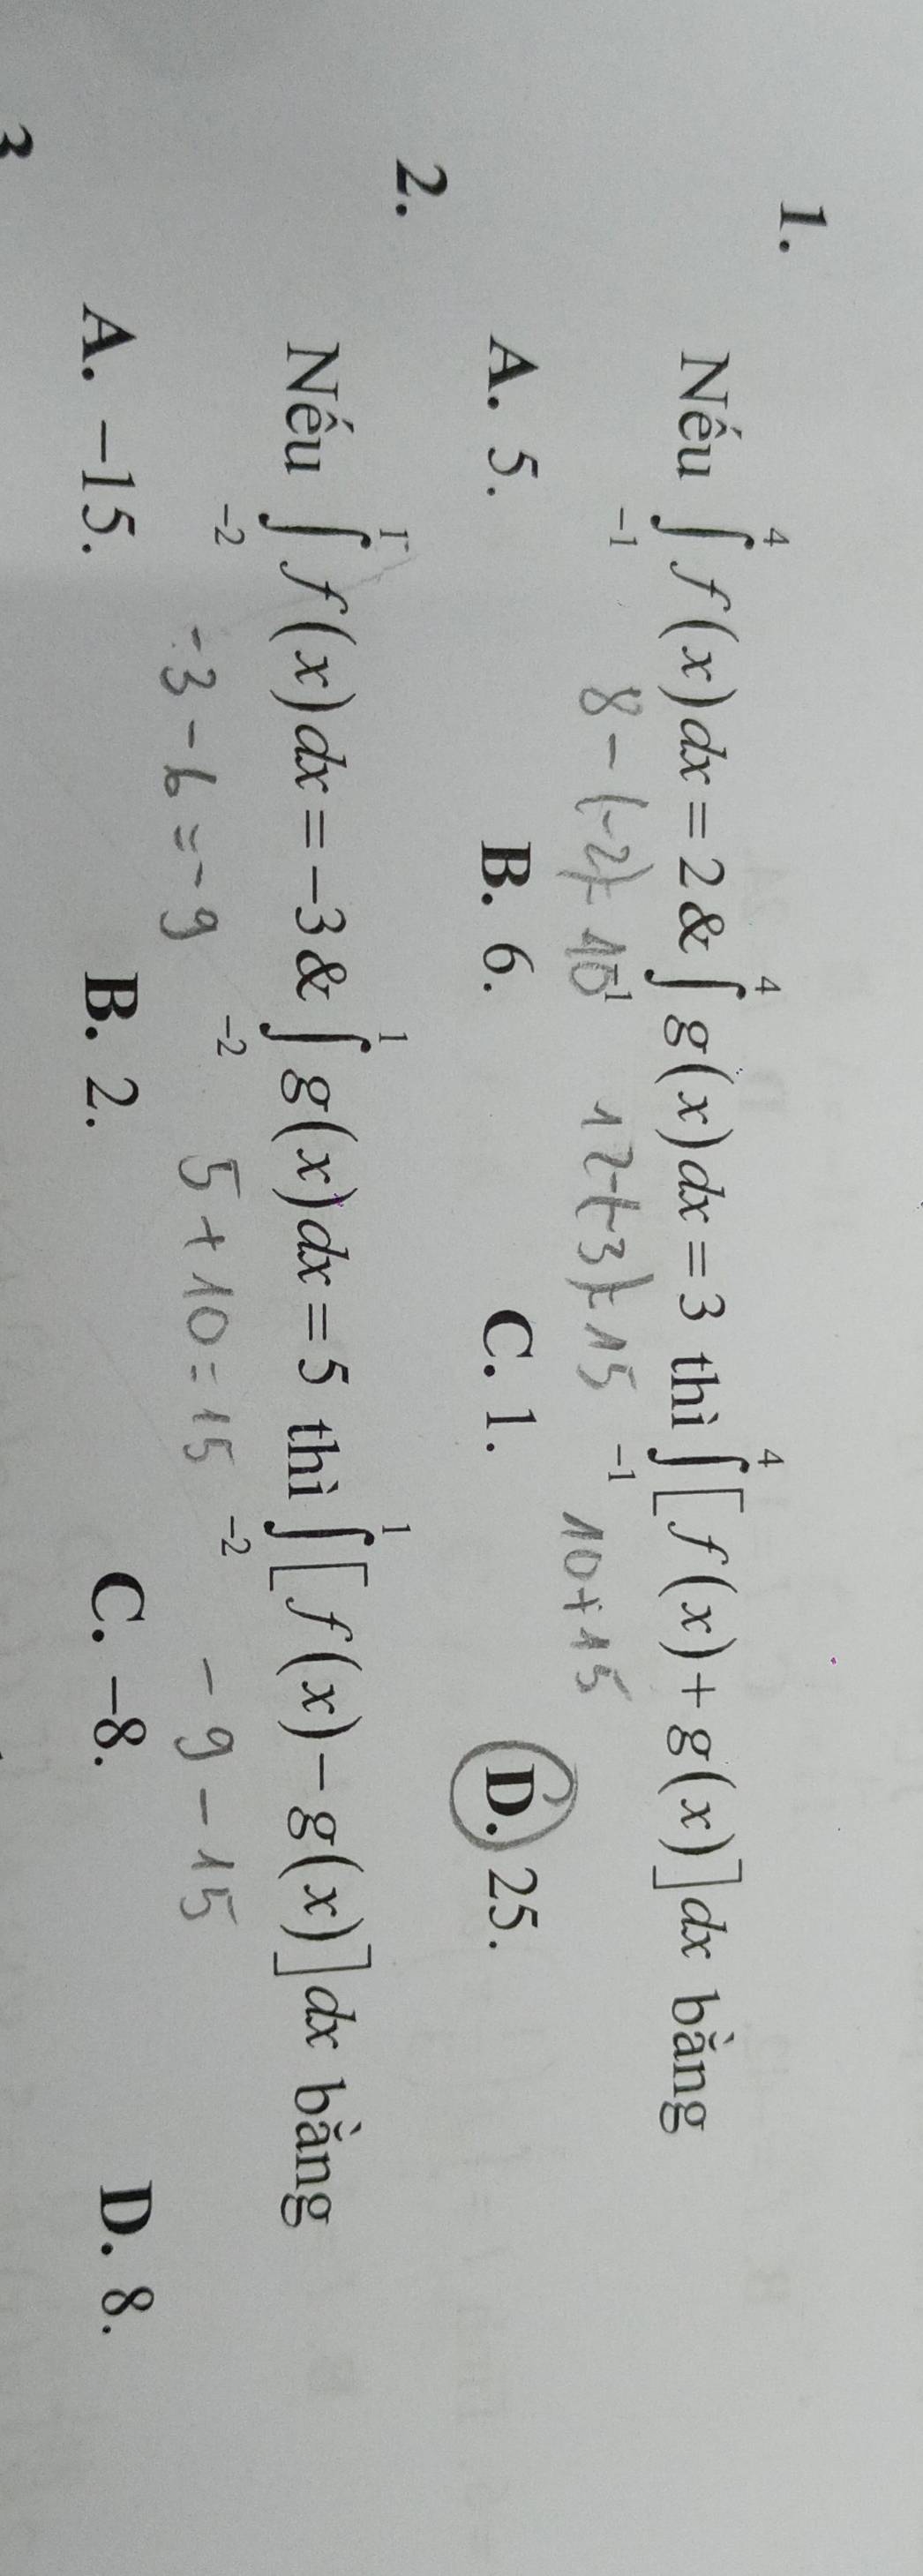 1. Nếu ∫_{-1}^{4} f(x)dx = 2 & ∫_{-1}^{4} g(x)dx = 3 thì ∫_{-1}^{4} [f(x)+g(x)]dx bằng
8 - (-2) = 10 12-(-3) = 15 10+15
A. 5. B. 6. C. 1. D. 25.
2. Nếu ∫_{-2}^{1} f(x)dx = -3 & ∫_{-2}^{1} g(x)dx = 5 thì ∫_{-2}^{1} [f(x)-g(x)]dx bằng
-3 - 6 = -9 5 + 10 = 15 -9 - 15
A. -15. B. 2. C. -8. D. 8.
3